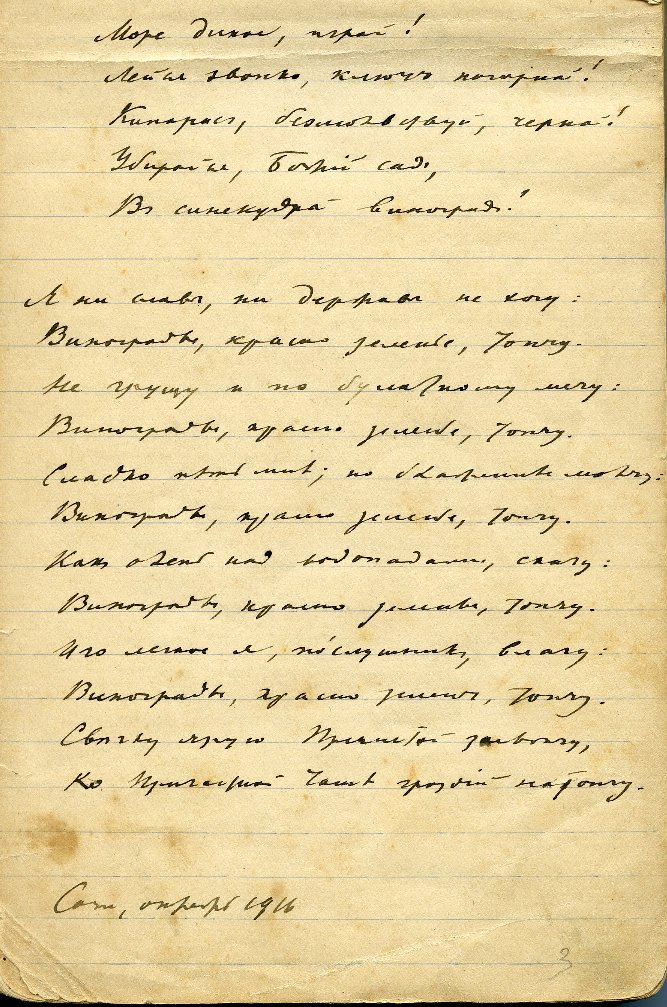 Море дикое, играй!
Лейся звонко, ключъ нагорный!
Кипарисъ, безмолвствуй, черный!
Убирайся, Божій садъ,
Въ синекудрый виноградъ!
Я ни славы, ни державы не хочу:
Виноградье, красно зеленье, топчу.
Не грущу и по булатному мечу:
Виноградье, красно зеленье, топчу.
Сладко пѣть мнѣ; но блаженнѣе молчу:
Виноградье, красно зеленье, топчу.
Какъ олень надъ водопадами, скачу:
Виноградье, красно зеленье, топчу.
Иго легкое я, послушникъ, влачу:
Виноградье, красно зеленье, топчу.
Свѣчку ярую Пречистой засвѣчу,
Ко Причастной Чашѣ гроздій натопчу.
Сочи, октябрь 1916
3